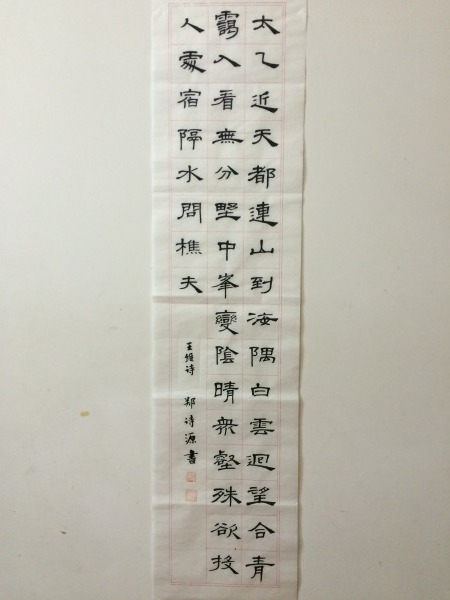 太乙近天都連山到海隅白雲迴望合青
靄入看無分野中峯變陰晴衆壑殊欲投
人處宿隔水問樵夫
王维诗 郑诗源書